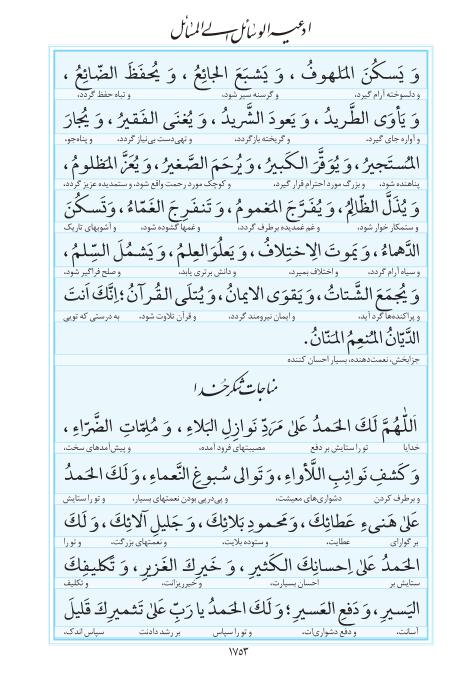 ادعیه الوسائل الی المسائل
وَ یَسکُنَ المَلهوفُ ، وَ یَشبَعَ الجائِعُ ، وَ یُحفَظَ الضّائِعُ ،
و دلسوخته آرام گیرد، و گرسنه سیر شود، و تباه حفظ گردد،
وَ یَأوَی الطَّریدُ ، وَ یَعودَ الشَّریدُ ، وَ یُغنَی الفَقیرُ ، وَ یُجارَ
و آواره جای گیرد، و گریخته بازگردد، و تهی‌دست بی‌نیاز گردد، و پناه‌جو،
المُستَجیرُ ، وَ یُوَقَّرَ الکَبیرُ ، وَ یُرحَمَ الصَّغیرُ ، وَ یُعَزَّ المَظلومُ ،
پناهنده شود، و بزرگ مورد احترام قرار گیرد، و کوچک مورد رحمت واقع شود، و ستمدیده عزیز گردد،
وَ یُذَلَّ الظّالِمُ ، وَ یُفَرَّجَ المَغمومُ ، وَ تَنفَرِجَ الغَمّاءُ ، وَ تَسکُنَ
و ستمکار خوار شود، و غم غمدیده برطرف گردد، و غمها گشوده شود، و آشوبهای تاریک
الدَّهماءُ ، وَ یَموتَ الاِختِلافُ ، وَ یَعلُوَ العِلمُ ، وَ یَشمُلَ السِّلمُ ،
و سیاه آرام گردد، و اختلاف بمیرد، و دانش برتری یابد، و صلح فراگیر شود،
وَ یُجمَعَ الشَّتاتُ ، وَ یَقوَی الایمانُ ، وَ یُتلَی القُرآنُ ؛ اِنَّکَ اَنتَ
و پراکنده‌ها گرد آید، و ایمان نیرومند گردد، و قرآن تلاوت شود، به درستی که تویی
الدَّیّانُ المُنعِمُ المَنّانُ .
جزابخش، نعمت‌دهنده، بسیار احسان کننده
مناجات شکر خدا
اَللّٰهُمَّ لَکَ الحَمدُ عَلیٰ مَرَدِّ نَوازِلِ البَلاءِ ، وَ مُلِمّاتِ الضَّرّاءِ ،
خدایا تو را ستایش بر دفع مصیبتهای فرود آمده، و پیش‌آمدهای سخت،
وَ کَشفِ نَوائِبِ اللَّأواءِ ، وَ تَوالی سُبوغِ النَّعماءِ ، وَ لَکَ الحَمدُ
و برطرف کردن دشواری‌های معیشت، و پی‌درپی بودن نعمتهای بسیار، و تو را ستایش
عَلیٰ هَنیءِ عَطائِکَ ، وَ مَحمودِ بَلائِکَ ، وَ جَلیلِ آلائِکَ ، وَ لَکَ
بر گوارای عطایت، و ستوده بلایت، و نعمتهای بزرگت، و تو را
الحَمدُ عَلیٰ اِحسانِکَ الکَثیرِ ، وَ خَیرِکَ الغَزیرِ ، وَ تَکلیفِکَ
ستایش بر احسان بسیارت، و خیر ریزانت، و تکلیف
الیَسیرِ ، وَ دَفعِ العَسیرِ ؛ وَ لَکَ الحَمدُ یا رَبِّ عَلیٰ تَثمیرِکَ قَلیلَ
آسانت، و دفع دشواری‌ات، و تو را سپاس بر رشد دادنت سپاس اندک،
۱۷۵۳